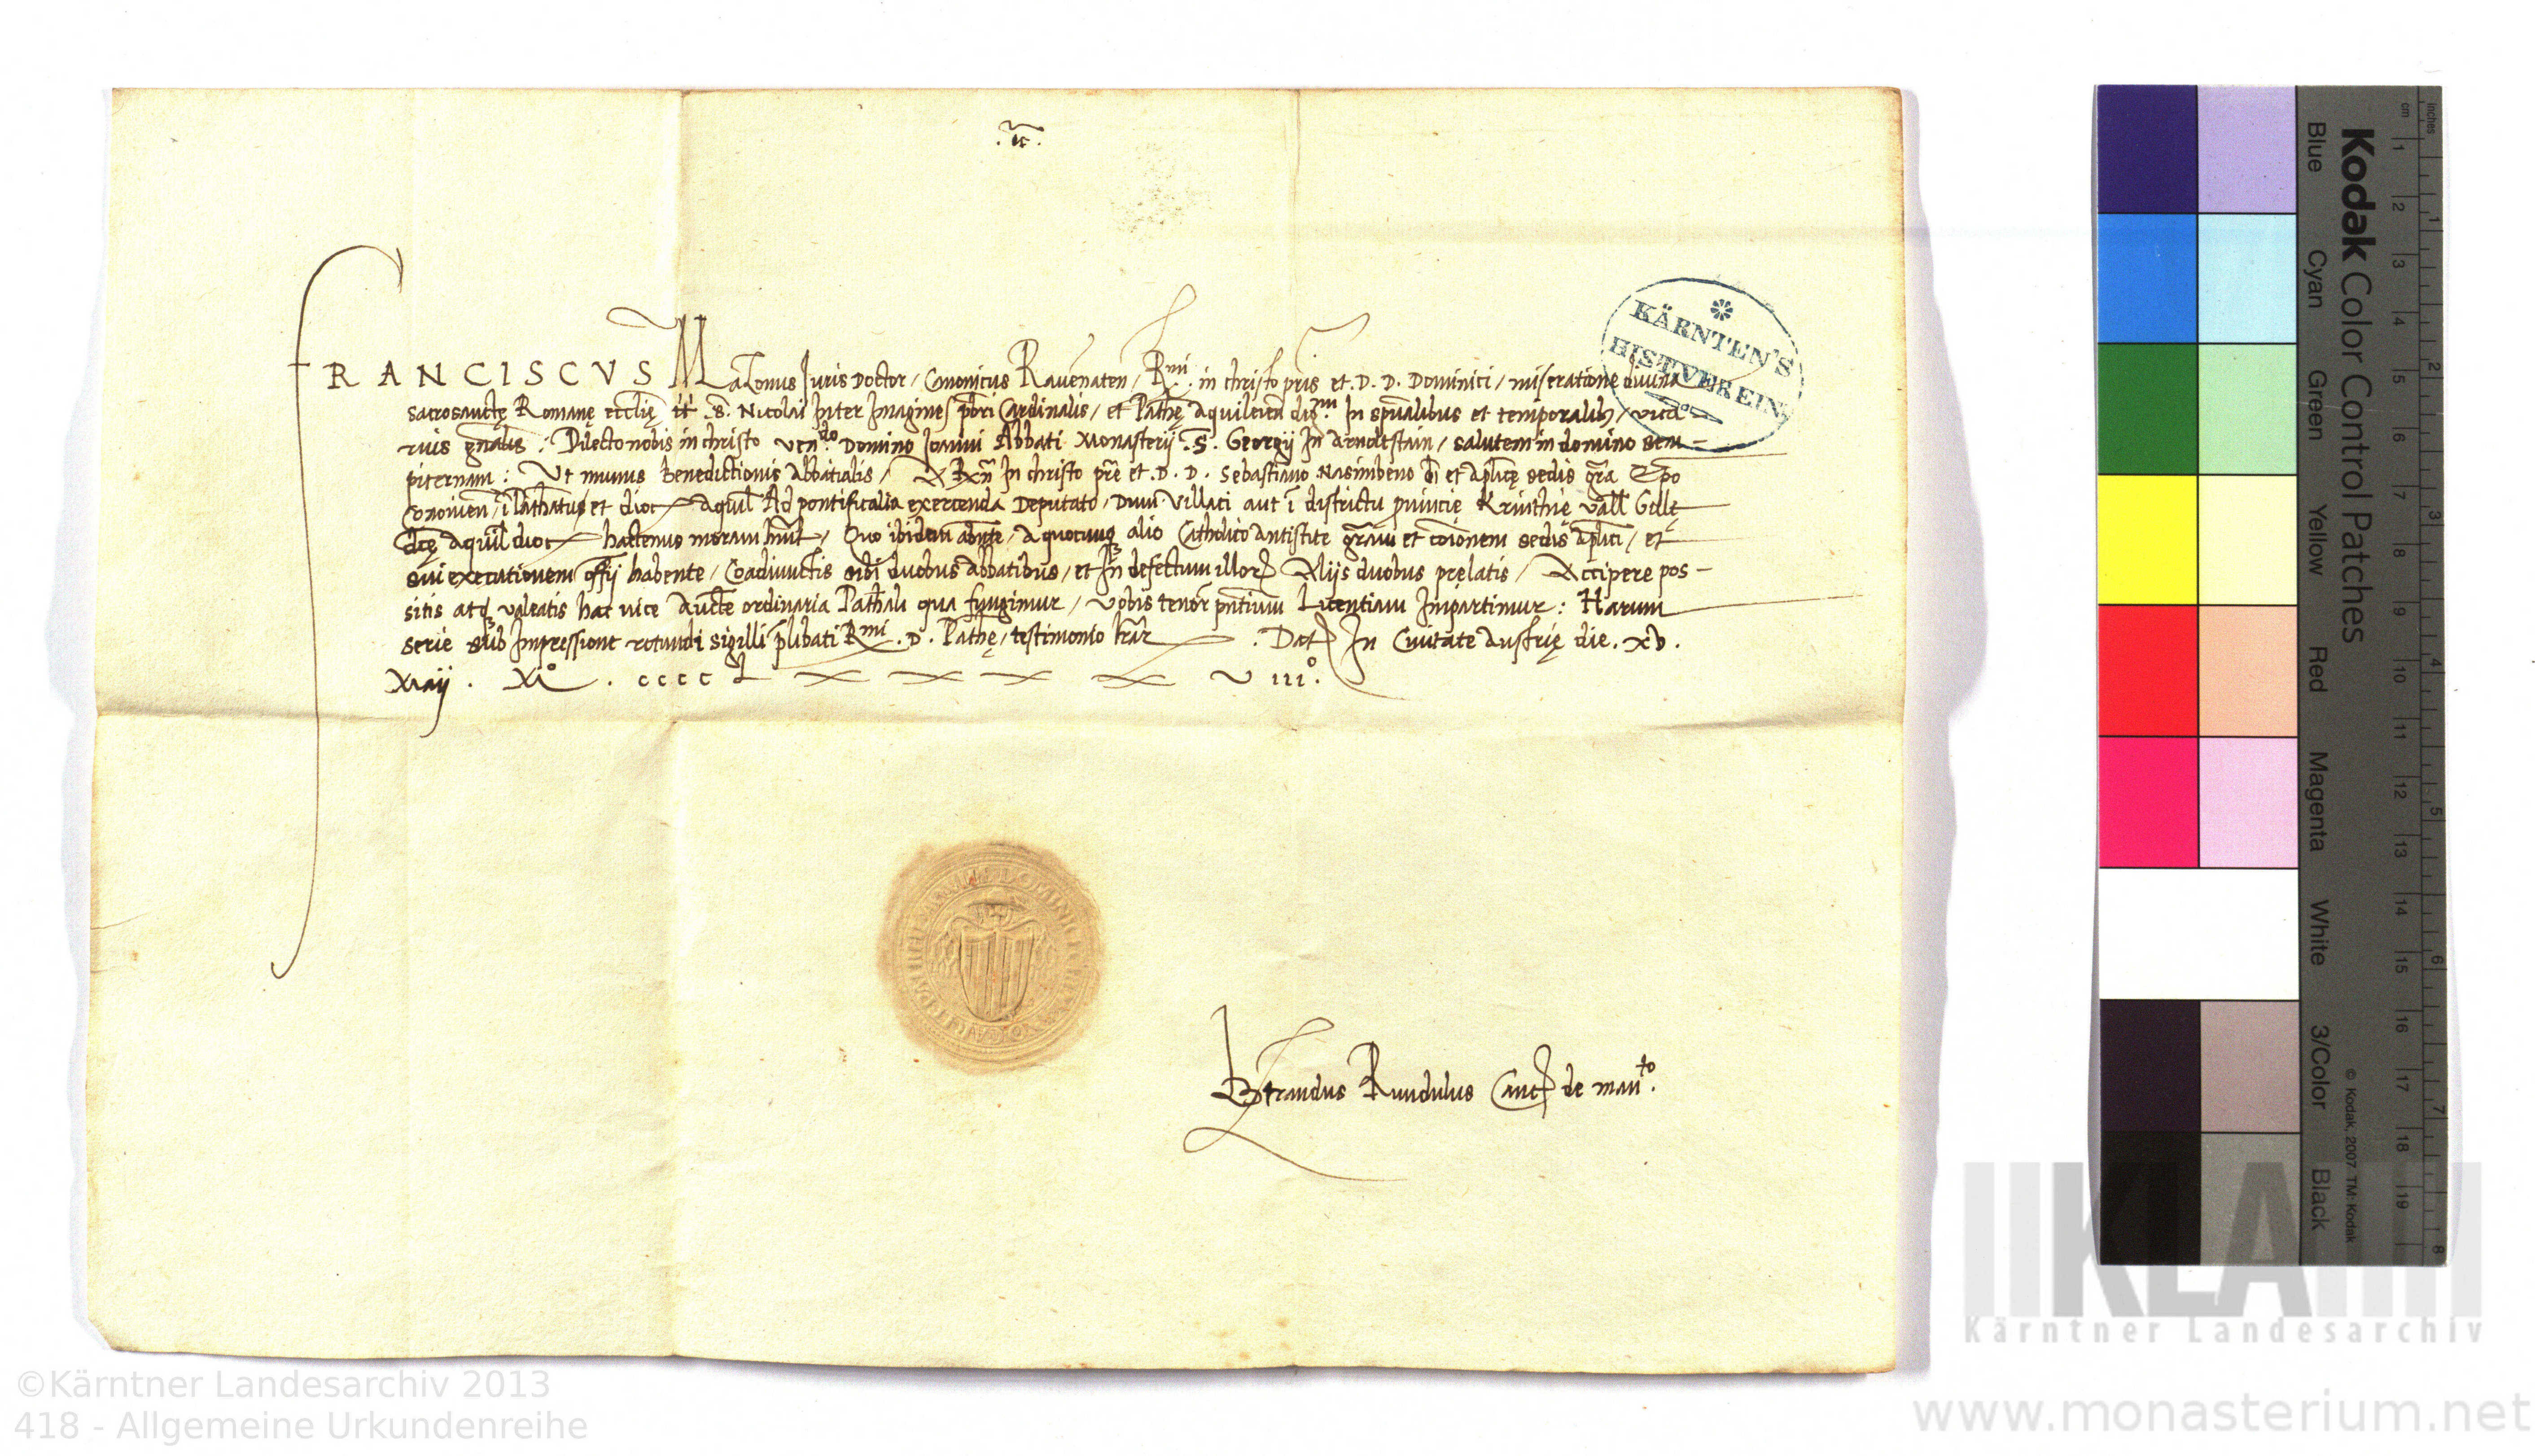 .ic.
FRANCISCVS Malonus Juris Doctor / Canonicus Ravenaten / Rmi. in christo pris et. D. D. Dominici / miseratione divina
sacrosanctę Romanę ecclię tt .S. Nicolai Inter Imagines pbri Cardinalis / et Pathę Aquileien dig.mi In spualibus et temporalib / vica
rius gnalis : Dilecto nobis in christo ven.do Domino Joanni Abbati Monasterij .S. Georgij In Arnoltstain / salutem in domino sem-
piternam : Ut munus benedictionis Abbatialis / A Rn In christo pre et. D. D. Sebastiano Nasimbeno di et Aplicę sedis gra Epo
/ i Pathatu et dioc Aquil Ad pontificalia exercenda Deputato / Dum Villaci aut i districtu puincię Krinthię vall Gillę
dcę Aquil dioc hactenus moram / Quo ibidem abnte / a quocunq alio Catholico Antistite gram et coionem sedis aplici / et
sui executionem offij habente / Coadiunctis sibi duobus Abbatibus / et In defectum illor Alijs duobus prelatis / Accipere pos-
sitis atq valeatis hac vice Aucte ordinaria Pathali qua fungimur / vobis tenor pntium Licentiam Impartimur : Harum
serie sub Impressione rotundi sigilli plibati Rmi. D. Pathę / testimonio lrar . Dat In Civitate Austrię die . xv .
Maij . Mo . cccc L x x x x v iii o.
Rundulus Canc de manto.
KÄRNTEN'S
HIST. VEREIN
Kodak Color Control Patches
Blue Cyan Green Yellow Red Magenta White 3/Color Black
© Kodak, 2007 TM: Kodak
cm 1 2 3 4 5 6 7 8 9 10 11 12 13 14 15 16 17 18 19
inches 1 2 3 4 5 6 7 8
KLA
Kärntner Landesarchiv
©Kärntner Landesarchiv 2013
418 - Allgemeine Urkundenreihe
www.monasterium.net